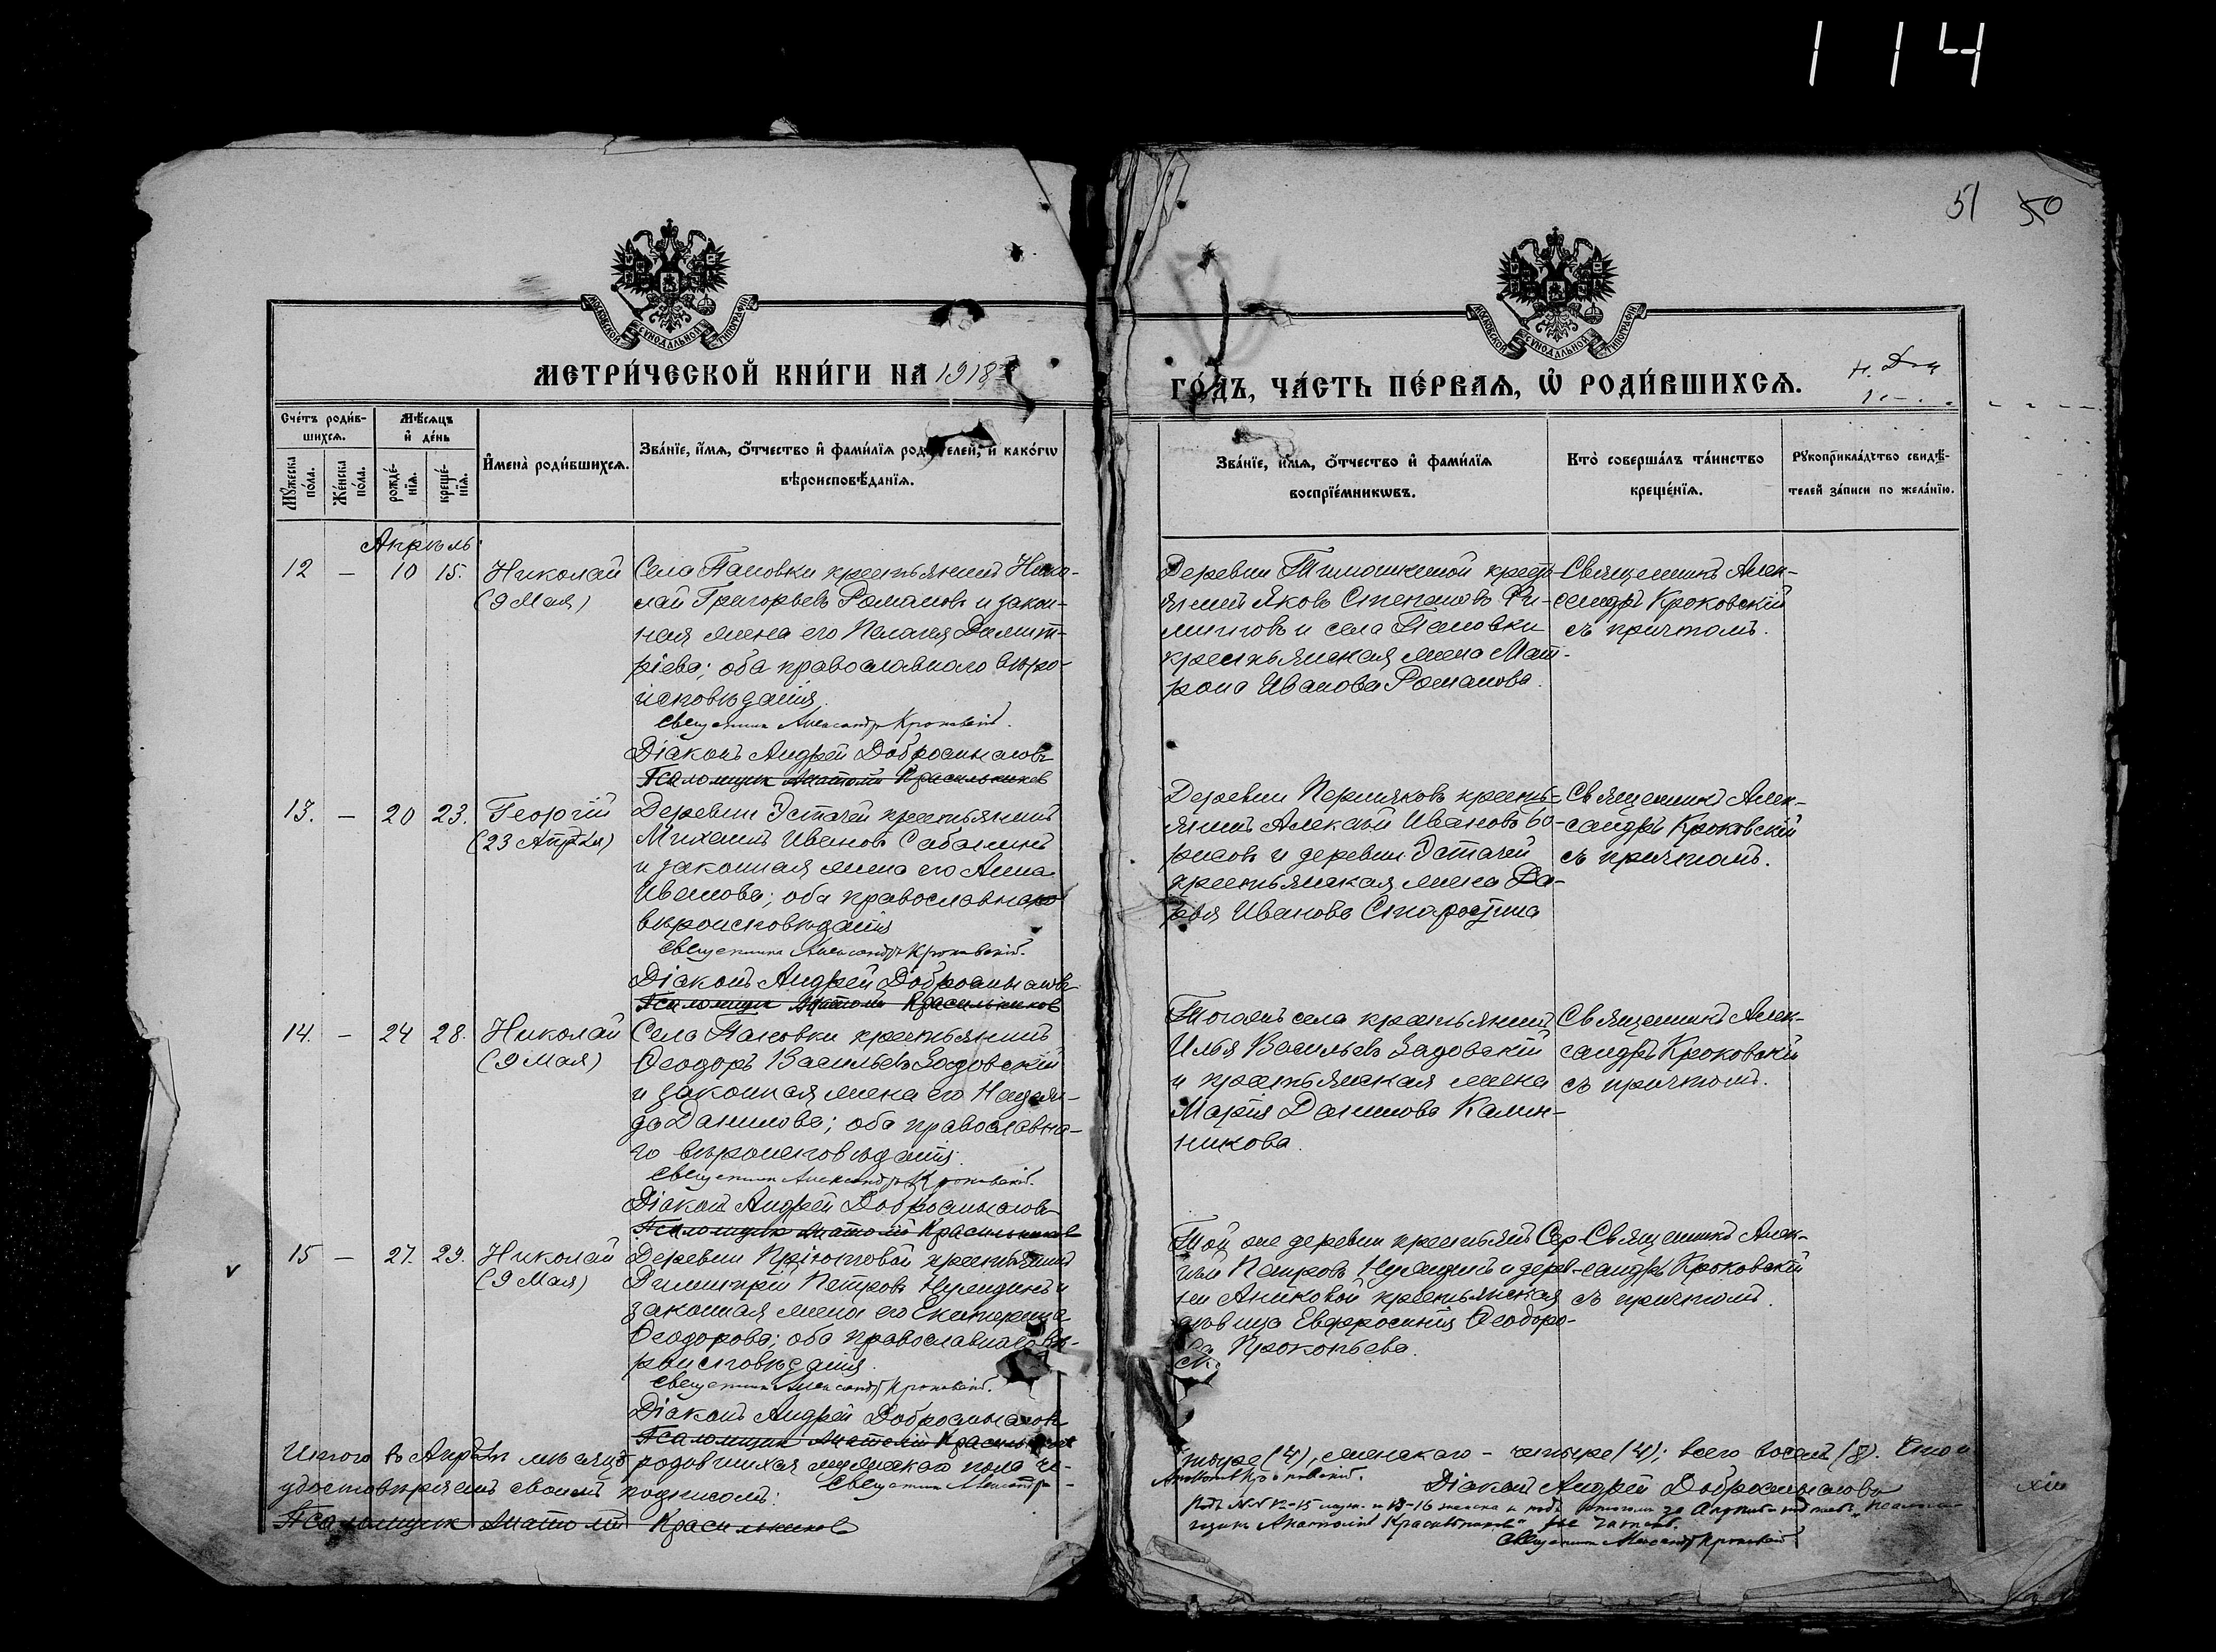 114
51 50
МОСКОВСКОЙ СѴНОДАЛЬНОЙ ТИПОГРАФІИ
МОСКОВСКОЙ СѴНОДАЛЬНОЙ ТИПОГРАФІИ
МЕТРИ́ЧЕСКОЙ КНИ́ГИ НА 1918
ГО́ДЪ, ЧА́СТЬ ПЕ́РВАѦ, Ѡ҆ РОДИ́ВШИХСѦ.
Сче́тъ роди́в-
шихсѧ.
Мꙋ́жеска по́ла.
Же́нска по́ла.
Мѣ́сѧцъ
и҆ де́нь
рожде́-
нїѧ.
креще́-
нїѧ.
И҆мена̀ роди́вшихсѧ.
Зва́нїе, и҆́мѧ, ѻ҆́тчество и҆ фами́лїѧ родителей, и҆ како́гѡ
вѣроисповѣ́данїѧ.
Зва́нїе, и҆́мѧ, ѻ҆́тчество и҆ фами́лїѧ
воспрїе́мникѡвъ.
Кто̀ соверша́лъ та́инство
креще́нїѧ.
Рꙋкоприкла́дство свидѣ́-
телей за́писи по жела́нїю.
Апрѣль
12 — 10 15.
Николай
(9 Мая)
Села Пановки крестьянинъ Нико-
лай Григорьевъ Романовъ и закон-
ная жена его Пелагея Димит-
ріева; оба православнаго вѣро-
исповѣданія.
Священникъ Александръ Кроковскій.
Діаконъ Андрей Добросмысловъ
Псаломщик Анатолій Красильников
Деревни Тимошкиной кресть-
янинъ Яковъ Степановъ Фи-
липповъ и села Пановки
крестьянская жена Мат-
рона Иванова Романова.
Священникъ Алек-
сандръ Кроковскій
съ причтомъ.
13. — 20 23.
Георгій
(23 Апрѣля)
Деревни Эстачей крестьянинъ
Михаилъ Ивановъ Сабалинъ
и законная жена его Анна
Иванова; оба православнаго
вѣроисповѣданія
Священникъ Александръ Кроковскій.
Діаконъ Андрей Добросмысловъ
Псаломщик Анатолій Красильников
Деревни Пермяковъ кресть-
янинъ Алексѣй Ивановъ Бо-
рисовъ и деревни Эстачей
крестьянская жена Да-
рья Иванова Старостина
Священникъ Алек-
сандръ Кроковскій
съ причтомъ.
14. — 24 28.
Николай
(9 Мая)
Села Пановки крестьянинъ
Ѳеодоръ Васильевъ Задовскій
и законная жена его Надеж-
да Данилова; оба православна-
го вѣроисповѣданія.
Священникъ Александръ Кроковскій.
Діаконъ Андрей Добросмысловъ
Псаломщик Анатолій Красильников
Тогожъ села крестьянинъ
Илья Васильевъ Задовскій
и крестьянская жена
Марія Данилова Калин-
никова.
Священникъ Алек-
сандръ Кроковскій
съ причтомъ.
15 — 27. 29.
Николай
(9 Мая)
Деревни крестьянинъ
Димитрій Петровъ и
законная жена его Екатерина
Ѳеодорова; оба православнаго вѣ-
роисповѣданія.
Священникъ Александръ Кроковскій.
Діаконъ Андрей Добросмысловъ
Псаломщик Анатолій Красильников
Той же деревни крестьянинъ Сер-
гѣй Петровъ и дерев-
ни Аниковой крестьянская
дѣвица Евфросинія Ѳеодоро-
ва Прокопьева.
Священникъ Алек-
сандръ Кроковскій
съ причтомъ.
Итого въ Апрѣлѣ мѣсяцѣ родившихся мужскаго пола че-
тыре (4), женскаго — четыре (4); всего восемь (8). Что и
удостовѣряемъ своимъ подписомъ: Священникъ Александръ
Кроковскій. Діаконъ Андрей Добросмысловъ
Псаломщик Анатолій Красильников
Подъ №№ 12-15 муж. и 13-16 женска и подъ итогомъ за Апрѣль
Анатолій Красильниковъ не читать.
Священникъ Александръ Кроковскій